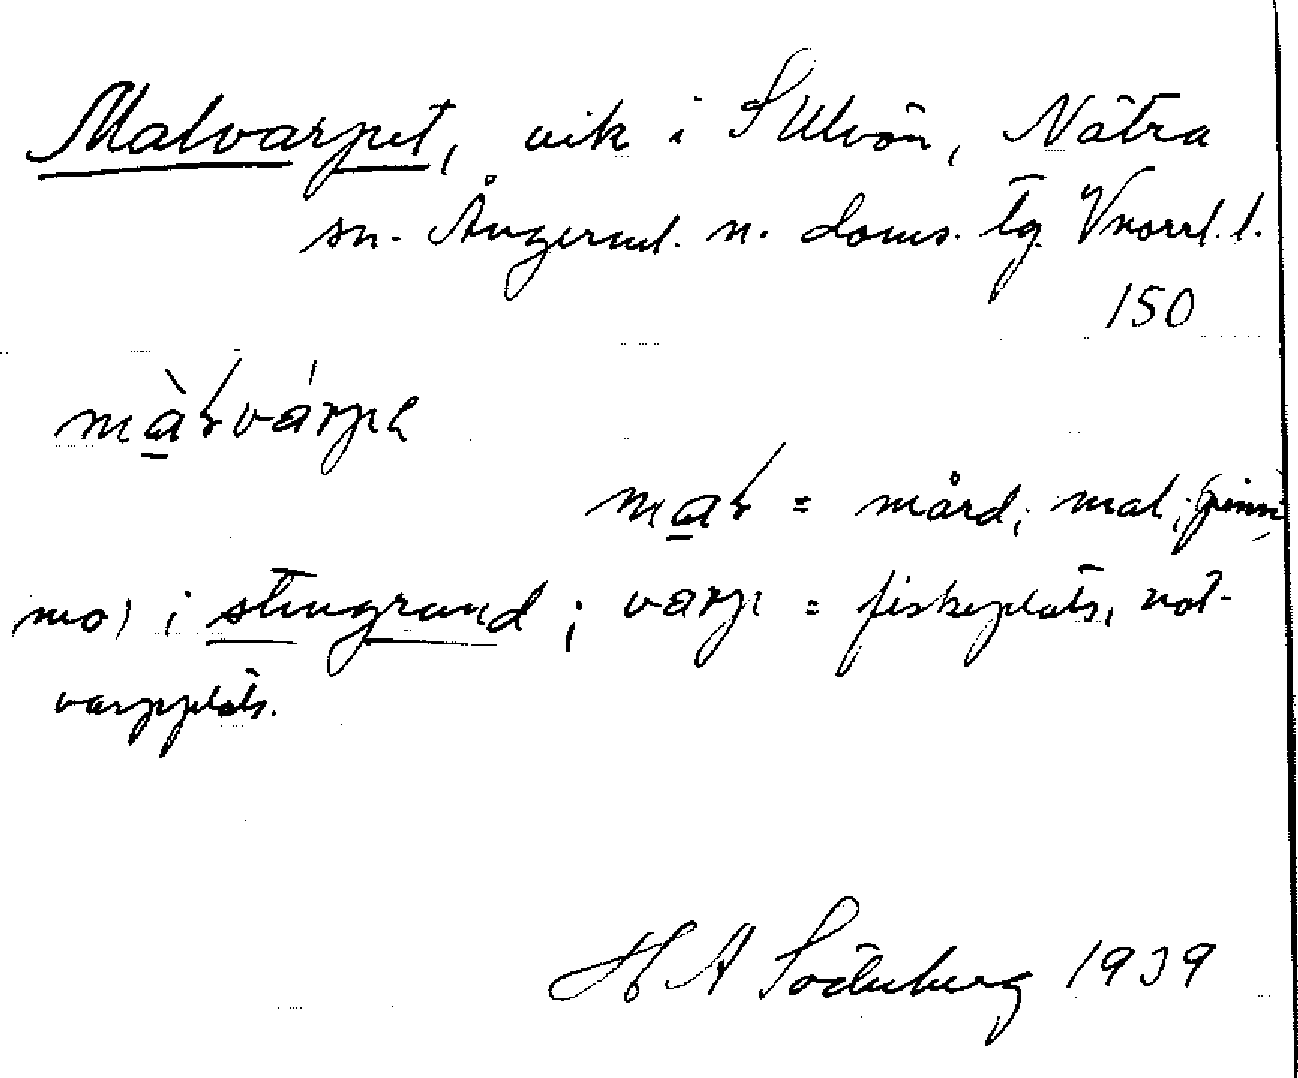 Malvarpet, vik i S Ulvön, Nätra
sn. Ångerml. n. doms. tg. Vnorrl. l.
150
màɽvárpə
maɽ = mård; mal;
mo) i stengrund; varp = fiskeplats, not-
varpplats.
H A Söderberg 1939